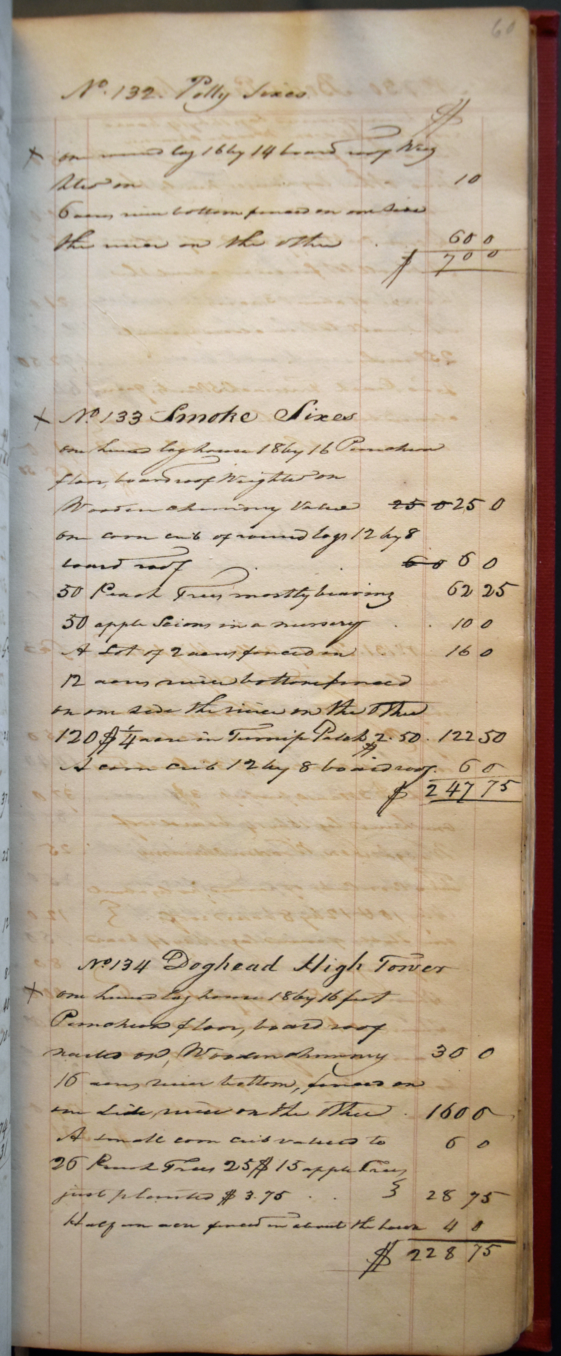 60
No. 132. Polly Sixes
$
x one round log 16 by 14 board roof
on 10
6 acres river bottom fenced on one side
the river on the other . 60 0
$ 70 0
x No. 133 Smoke Sixes
one hewed log house 18 by 16 Puncheon
floor, board roof Weighted on
Wooden chimney Value 25 0 25 0
one corn crib of round logs 12 by 8
board roof . . 6 0 6 0
50 Peach Trees mostly bearing 62 25
50 apple Scions in a nursery . . 10 0
A Lot of 2 acres fenced in . 16 0
12 acres river bottom fenced
on one side the river on the other
120 $ 1/4 acre in Turnip Patch $ 2.50. 122 50
A corn crib 12 by 8 board roof. 6 0
$ 247 75
No. 134 Doghead High Tower
x one hewed log house 18 by 16 feet
Puncheon floor, board roof
nailed on, Wooden chimney 30 0
16 acres river bottom, fenced on
one side, river on the other . 160 0
A small corn crib valued to 6 0
26 Peach Trees 25 $ 15 apple Trees
just planted $ 3.75 . . } 28 75
Half an acre fenced in about the house 4 0
$ 228 75